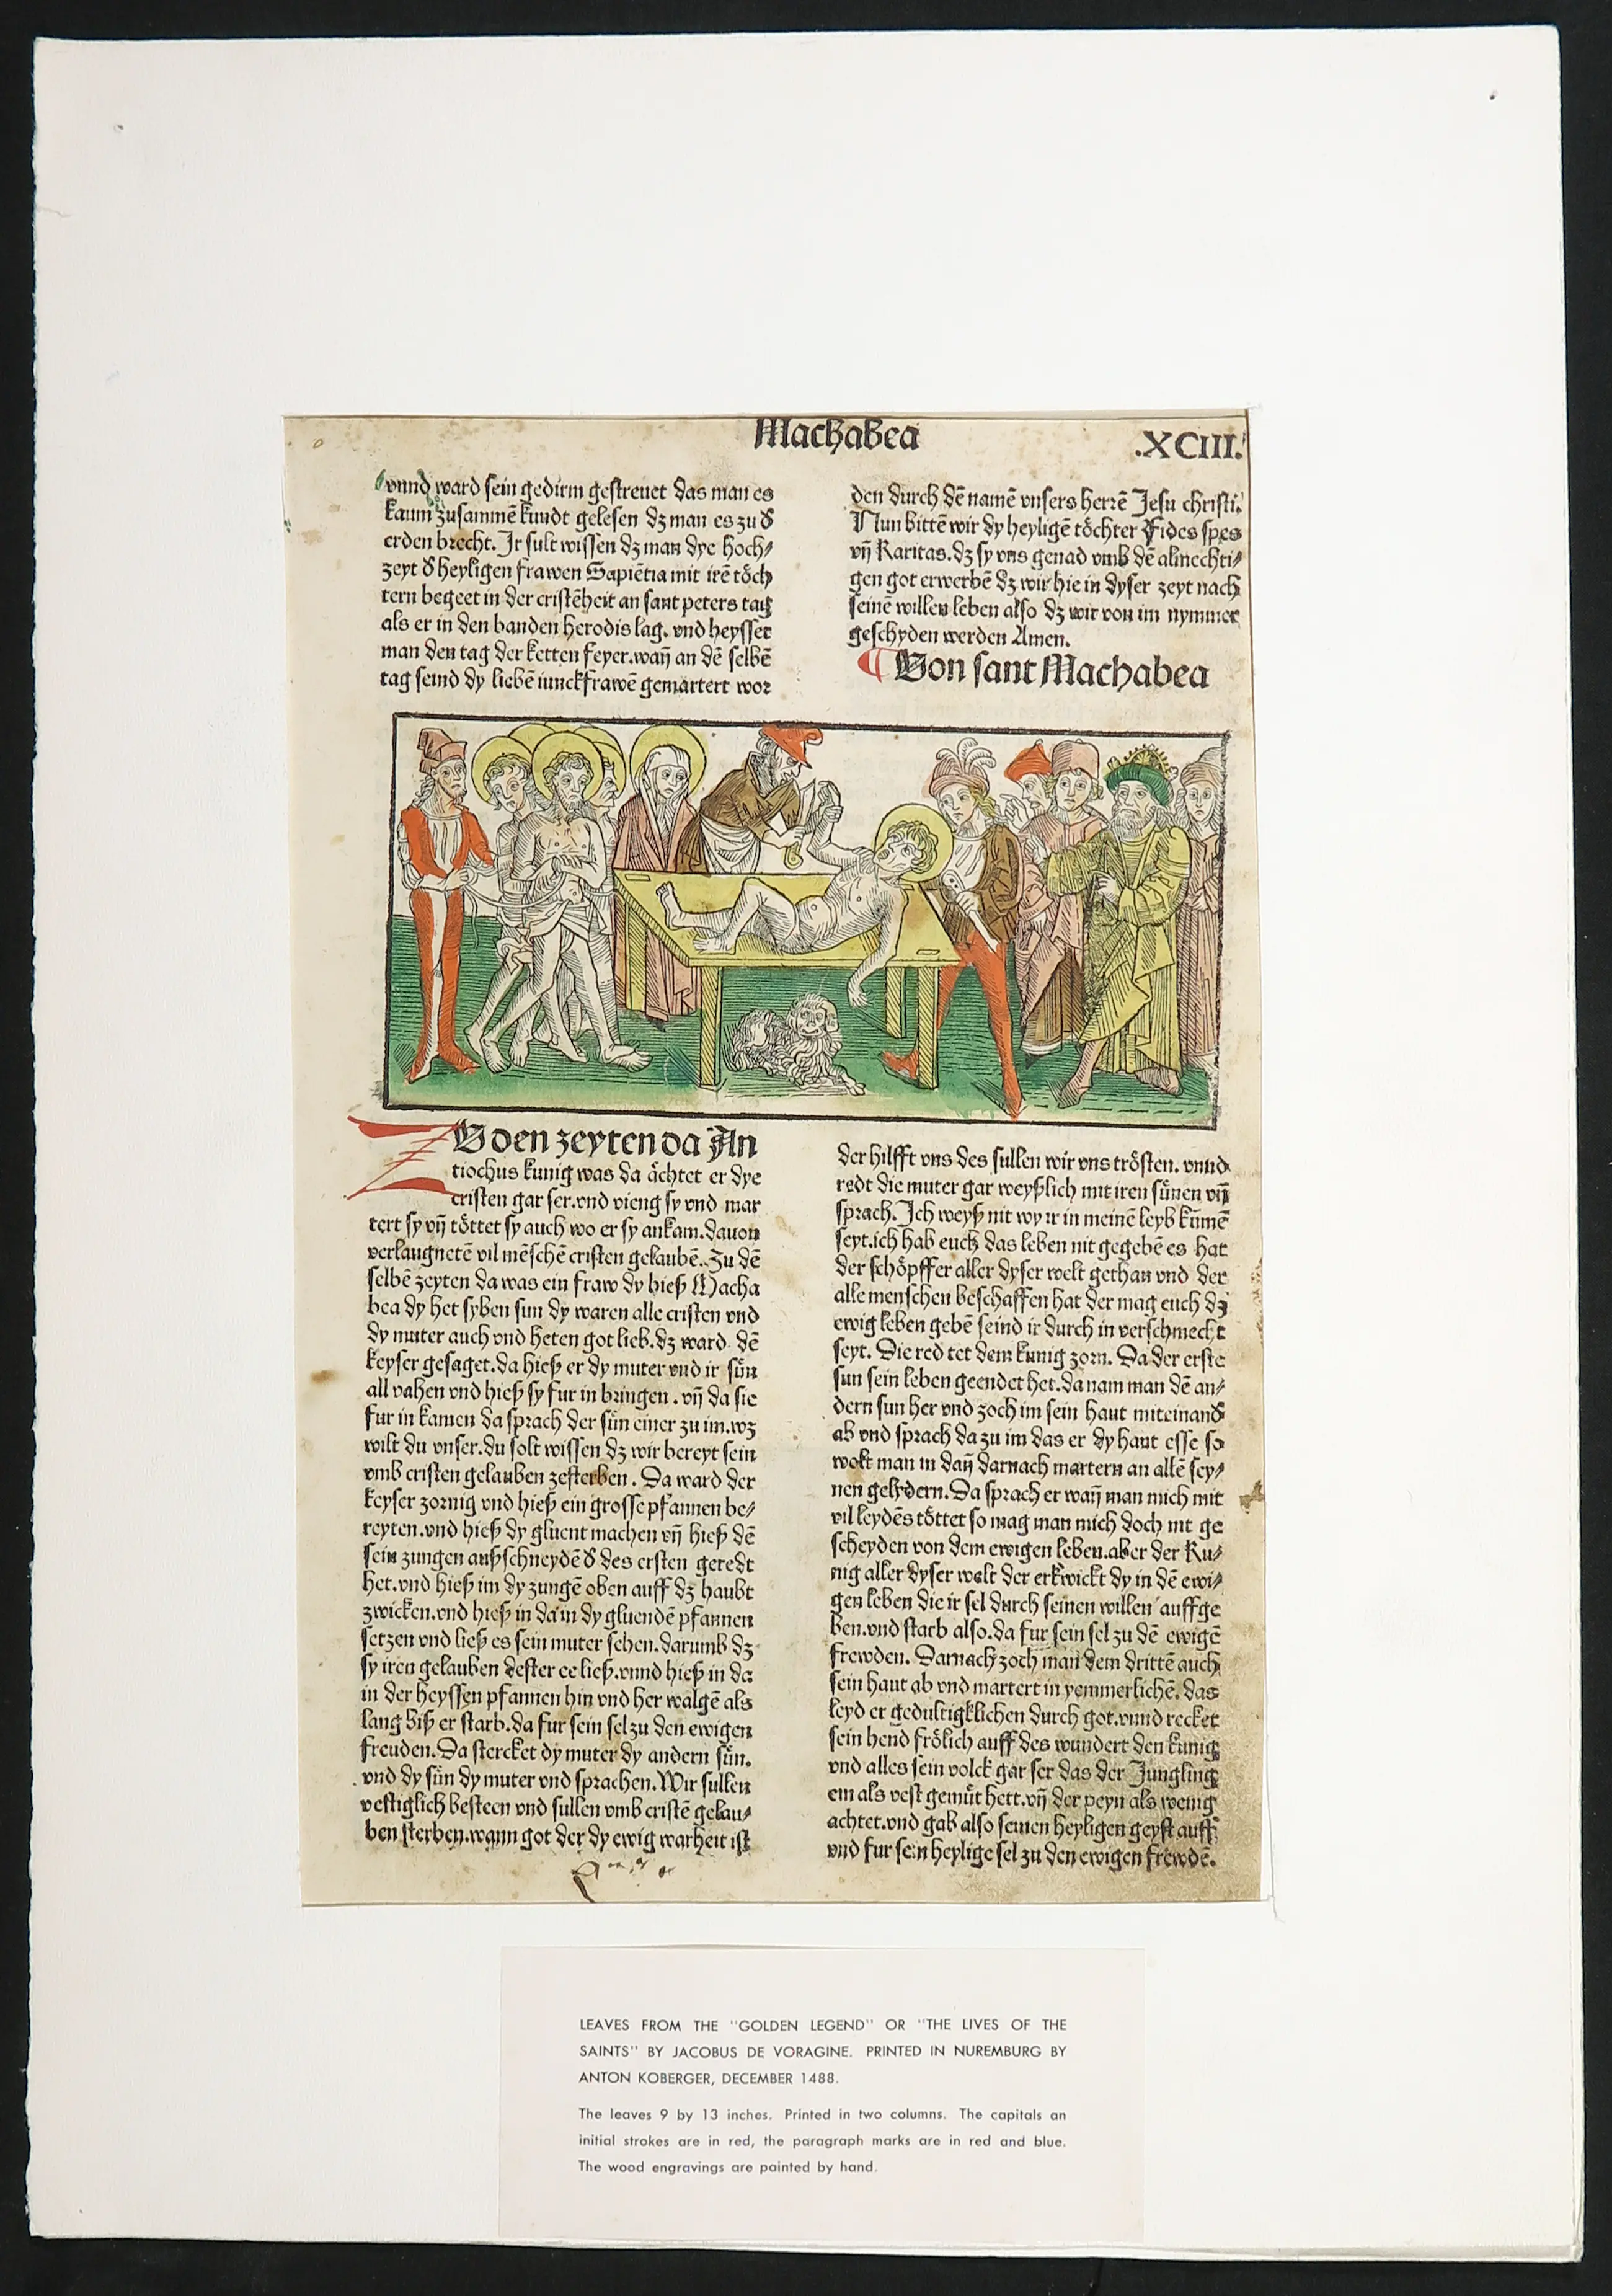 Machabea
.XCIII.
vnnd ward sein gedirm gestreuet das man es
kaum zusammē kundt gelesen dz man es zu d̕
erden brecht. Ir sult wissen dz man dye hoch⸗
zeyt d̕ heyligen frawen Sapiētia mit irē töch
tern begeet in der cristēheit an sant peters tag
als er in den banden herodis lag. vnd heysset
man den tag der ketten feyer.wañ an dē selbē
tag seind dy liebē iunckfrawē gemartert wor
den durch dē namē vnsers herrē Jesu christi.
Nun bittē wir dy heyligē töchter Fides spes
vñ Karitas.dz sy vns genad vmb dē almechti⸗
gen got erwerbē dz wir hie in dyser zeyt nach
seinē willen leben also dz wir von im nymmer
geschyden werden Amen.
¶ Von sant Machabea
ZV den zeyten da An
tiochus kunig was da ächtet er dye
cristen gar ser.vnd vieng sy vnd mar
tert sy vñ töttet sy auch wo er sy ankam.dauon
verlaugnetē vil mēschē cristen gelaubē. Zu dē
selbē zeyten da was ein fraw dy hieß Macha
bea dy het syben sun dy waren alle cristen vnd
dy muter auch vnd heten got lieb.dz ward dē
keyser gesaget.da hieß er dy muter vnd ir sün
all vahen vnd hieß sy fur in bringen. vñ da sie
fur in kamen da sprach der sün einer zu im.wz
wilt du vnser.du solt wissen dz wir bereyt sein
vmb cristen gelauben zesterben. Da ward der
keyser zornig vnd hieß ein grosse pfannen be⸗
reyten.vnd hieß dy gluent machen vñ hieß dē
sein zungen außschneydē d̕ des ersten geredt
het.vnd hieß im dy zungē oben auff dz haubt
zwicken.vnd hieß in da in dy gluendē pfannen
setzen vnd ließ es sein muter sehen.darumb dz
sy iren gelauben dester ee ließ.vnnd hieß in da
in der heyssen pfannen hin vnd her walgē als
lang biß er starb.da fur sein sel zu den ewigen
freuden.Da stercket dy muter dy andern sün.
vnd dy sün dy muter vnd sprachen.Wir sullen
vestiglich besteen vnd sullen vmb cristē gelau⸗
ben sterben.wann got der dy ewig warheit ist
der hilfft vns des sullen wir vns trösten. vnnd
redt die muter gar weyßlich mit iren sünen vñ
sprach.Ich weyß nit wy ir in meinē leyb kūmē
seyt.ich hab euch das leben nit gegebē es hat
der schöpffer aller dyser welt gethan vnd der
alle menschen beschaffen hat der mag euch dz
ewig leben gebē seind ir durch in verschmecht
seyt. Die red tet dem kunig zorn. Da der erste
sun sein leben geendet het.da nam man dē an⸗
dern sun her vnd zoch im sein haut miteinand̕
ab vnd sprach da zu im das er dy haut esse so
wolt man in dañ darnach martern an allē sey⸗
nen gelydern.Da sprach er wañ man mich mit
vil leydēs töttet so mag man mich doch nit ge
scheyden von dem ewigen leben.aber der Ku⸗
nig aller dyser welt der erkwickt dy in dē ewi⸗
gen leben die ir sel durch seinen willen auffge
ben.vnd starb also.da fur sein sel zu dē ewigē
frewden. Darnach zoch man dem drittē auch
sein haut ab vnd martert in yemmerlichē.das
leyd er gedultigklichen durch got.vnnd recket
sein hend frölich auff des wundert den kunig
vnd alles sein volck gar ser das der Jungling
ein als vest gemüt hett.vñ der peyn als wenig
achtet.vnd gab also seinen heyligen geyst auff
vnd fur sein heylige sel zu den ewigen frewdē.
LEAVES FROM THE "GOLDEN LEGEND" OR "THE LIVES OF THE
SAINTS" BY JACOBUS DE VORAGINE. PRINTED IN NUREMBURG BY
ANTON KOBERGER, DECEMBER 1488.
The leaves 9 by 13 inches. Printed in two columns. The capitals an
initial strokes are in red, the paragraph marks are in red and blue.
The wood engravings are painted by hand.